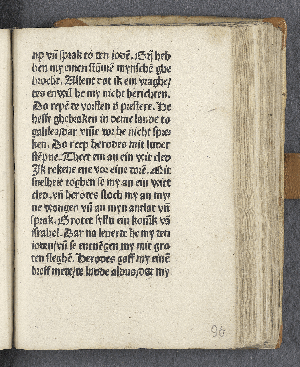 up vñ sprak to ten ioden. Gy heb
ben my enen stūmē mynschē ghe
brocht. Allent dat ik em vraghe/
des en wil he my nicht berichten.
Do repē de vorsten ñ prestere. He
hefft ghebaken in deme lande to
galilea/dar vme wil he nicht spre
ken. Do reep herodes mit luder
stēpne. Theet em an ein wit cled
Ik rekene ene vor eine dorē. Mit
snelheit toghen se my an ein wit
cled. vñ herodes sloch my an my
ne wangen vñ an myn antlat vñ
sprak. Grotet systu ein konīk vā
israhel. Dar na leuerde he my den
ioden/vñ se entfēgen my mit gro
ten sleghē. Herodes gaff my einē
breff mede/de ludde aldus/dat my
96